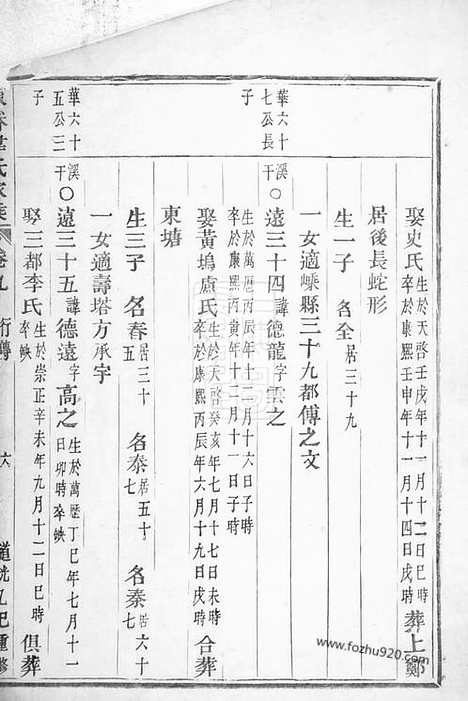 娶史氏 生於天啓壬戌年十一月十二日巳時 卒於康熙壬申年十一月十四日戌時 葬上鄭
居後長蛇形
生一子 名全 居三十九
一女適嵊縣三十九都傅之文
華六十七公長子
溪干 ○遠三十四 諱德龍字雲之 生於萬歷丙辰年十二月十六日子時 卒於康熙丙寅年十二月十一日子時
娶黃塢盧氏 生於天啓癸亥年七月十七日未時 卒於康熙丙辰年六月十九日戌時 合葬
東塘
生三子 名春 居三十五 名泰 居五十七 名秦 居六十七
一女適壽塔方承宇
華六十五公三子
溪干 ○遠三十五 諱德遠字高之 生於萬歷丁巳年七月十一日卯時卒缺
娶三都李氏 生於崇正辛未年九月十二日巳時 卒缺 俱葬
氏家乘 卷九 行傳 六 道光 己重修
www.fozhu920.com